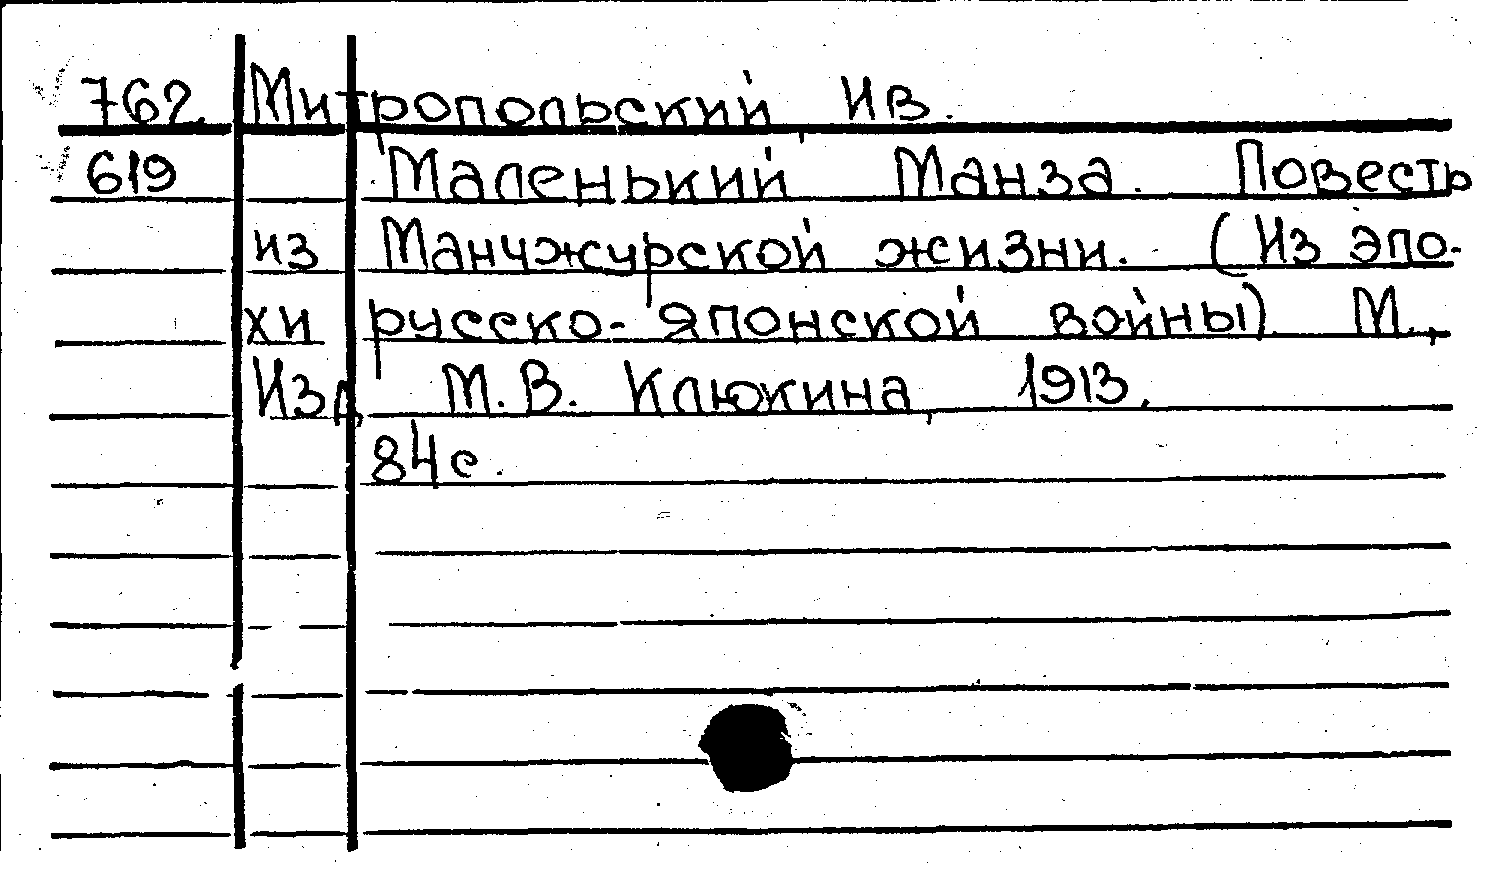 762 Митропольский Ив.
619 Маленький Манза. Повесть
из Манчжурской жизни. (Из эпо-
хи русско-японской войны). М.,
Изд. М.В. Клюкина, 1913.
84с.